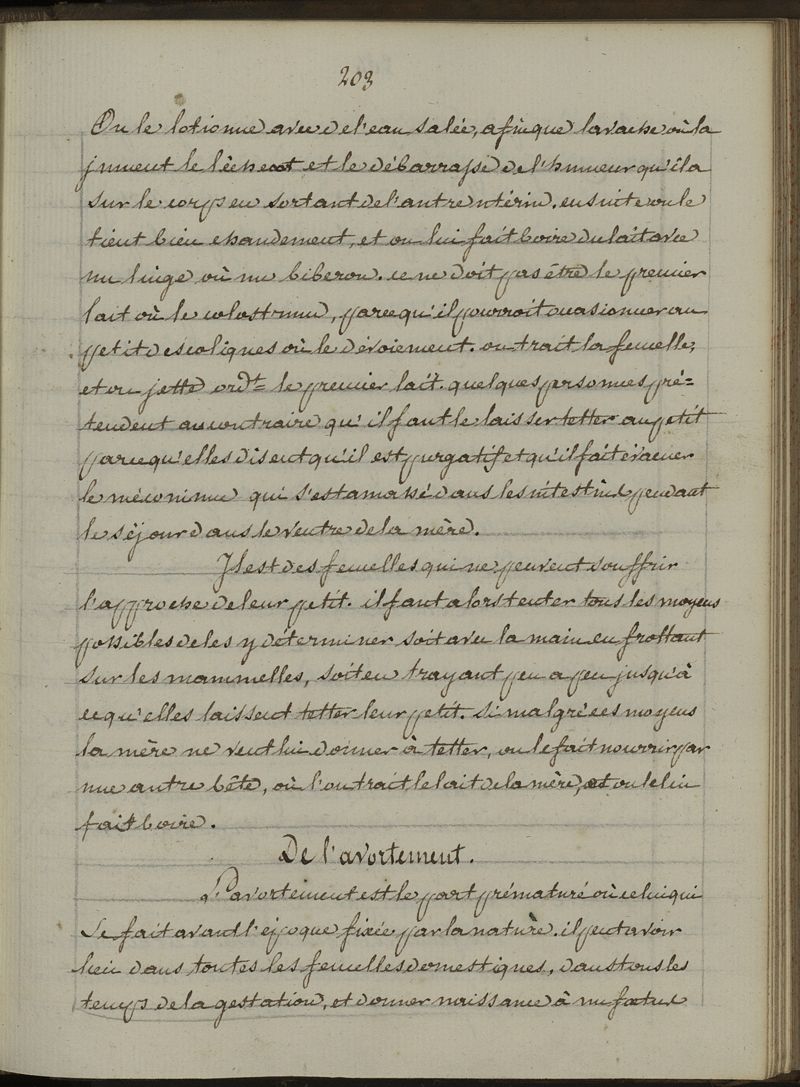 203
On le lotionne avec de l'eau salée, afin que la vache où la
jument le lèchent et le débarrasse de l'humeur qu'il a
sur le corps en sortant de l'antre utérin. ensuite on le
tient bien chaudement, et on lui fait boire du lait avec
un linge, où un biberon. ce ne doit pas être le premier
lait où le colostrum, parcequ'il pourroit ocasionner au
petit des coliques où le dévoiement. on trait la femelle,
et on jette ord.t le premier lait. quelques personnes pré=
tendent au contraire qu'il faut le laisser tetter au petit
parcequ'elles disent qu'il est purgatif et qu'il fait évacuer
le méconium qui s'est amassé dans les intestins pendant
le séjour dans le ventre de la mère.
Il est des femelles qui ne peuvent souffrir
l'approche de leur petit. il faut alors tenter tous les moyens
possibles de les y déterminer soit avec la main en frottant
sur les mammelles, soit en trayant peu a peu jusqu'à
ce qu'elles laissent tetter leur petit. si malgré ces moyens
la mère ne veut lui donner à tetter, on le fait nourrir par
une autre bête, où l'on trait le lait de la mère, et on le lui
fait boire.
De l'avortement.
L'avortement est le part prématuré où celui qui
se fait avant l'époque fixée par la nature. il peut avoir
lieu dans toutes les femelles domestiques, dans tous les
temps de la gestation, et donner naissance à un foetus